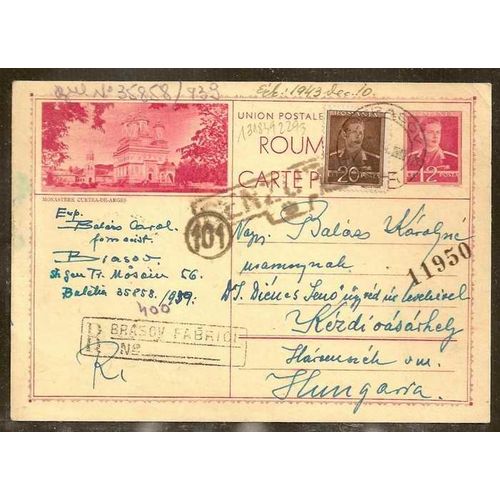 Nº 35858/939
Érk: 1943 Dec. 10.
1318392293
UNION POSTALE
ROUM
CARTE P
ROMANIA
20
12
MONASTÈRE CURTEA-DE-ARGEȘ
CENZURAT
101
Exp.
Balázs Carol.
Brasov
Str. Gen. Tr. Moșoiu 56.
35858./939.
400
R BRASOV FABRICI
Nº
R
Nagys. Balázs Károlyné
11950
Dr. Diénes Jenő ügyvéd úr leveleivel
Kézdivásárhely
Háromszék vm.
Hungaria